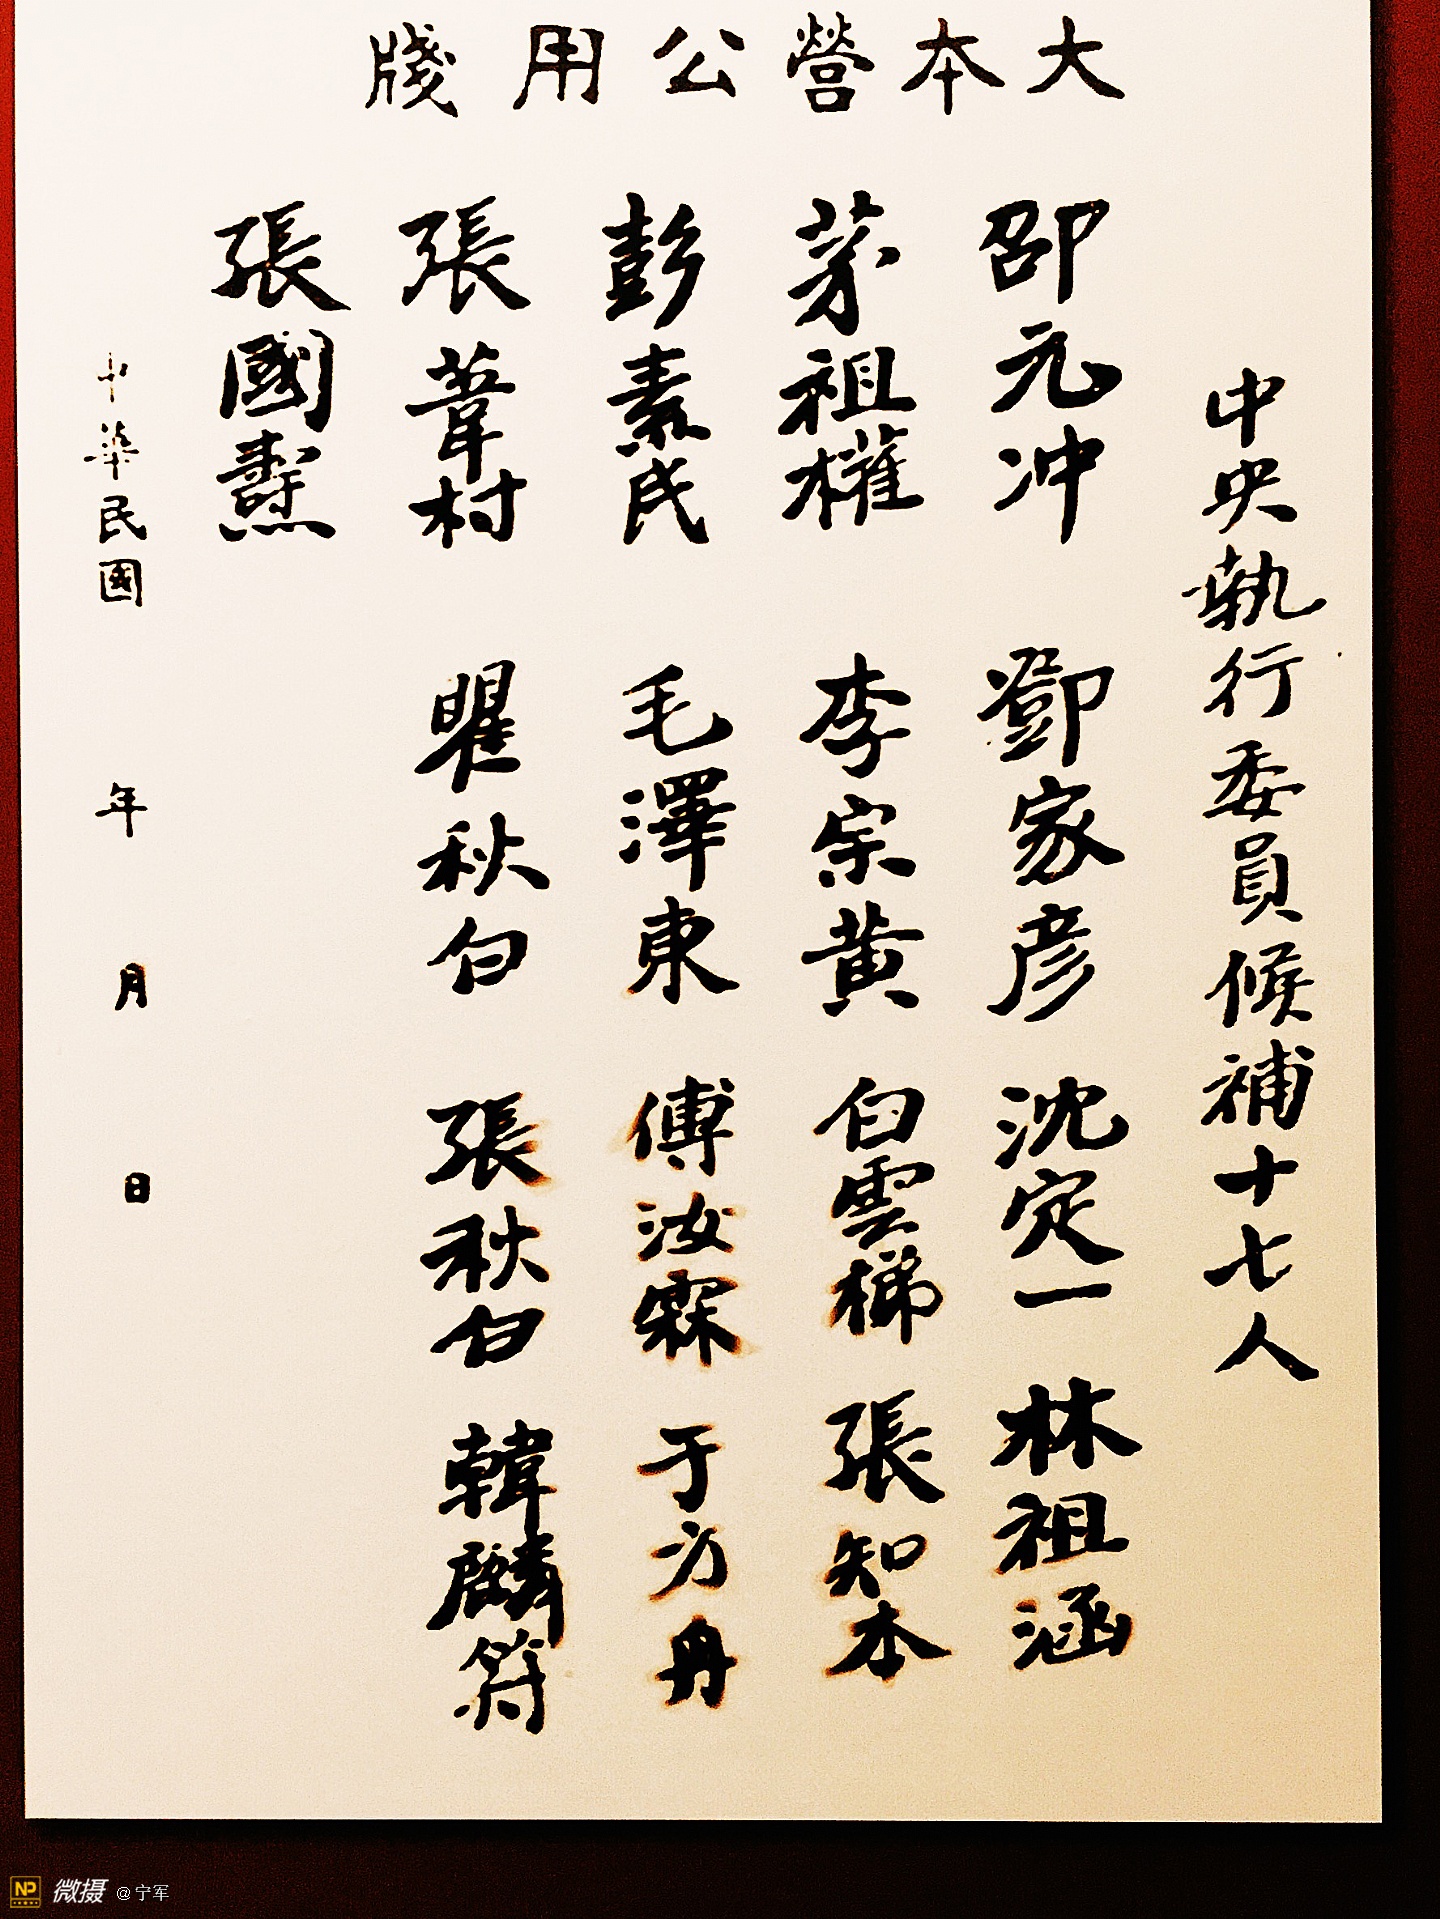 大本營公用牋
中央執行委員候補十七人
邵元冲 鄧家彦 沈定一 林祖涵
茅祖權 李宗黄 白雲梯 張知本
彭素民 毛澤東 傅汝霖 于方舟
張葦村 瞿秋白 張秋白 韓麟符
張國燾
中華民國 年 月 日
NP 微摄 @宁军